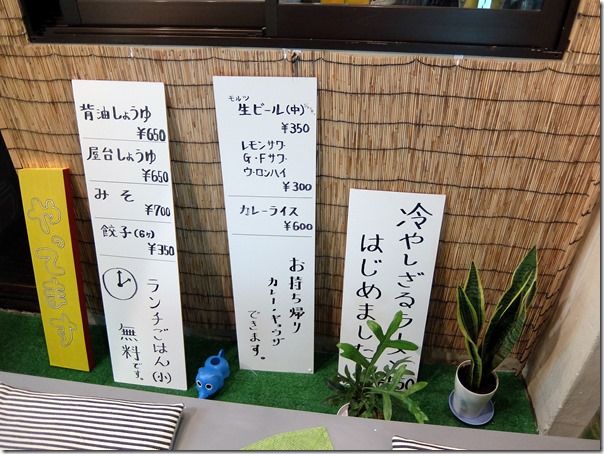 背油しょうゆ
¥650
屋台しょうゆ
¥650
みそ
¥700
餃子(6ヶ)
¥350
ランチごはん(小)
無料です。
モルツ
生ビール(中)
¥350
レモンサワ
G・Fサワ
ウーロンハイ
¥300
カレーライス
¥600
お持ち帰り
できます。
冷やしざるラー
はじめました
50